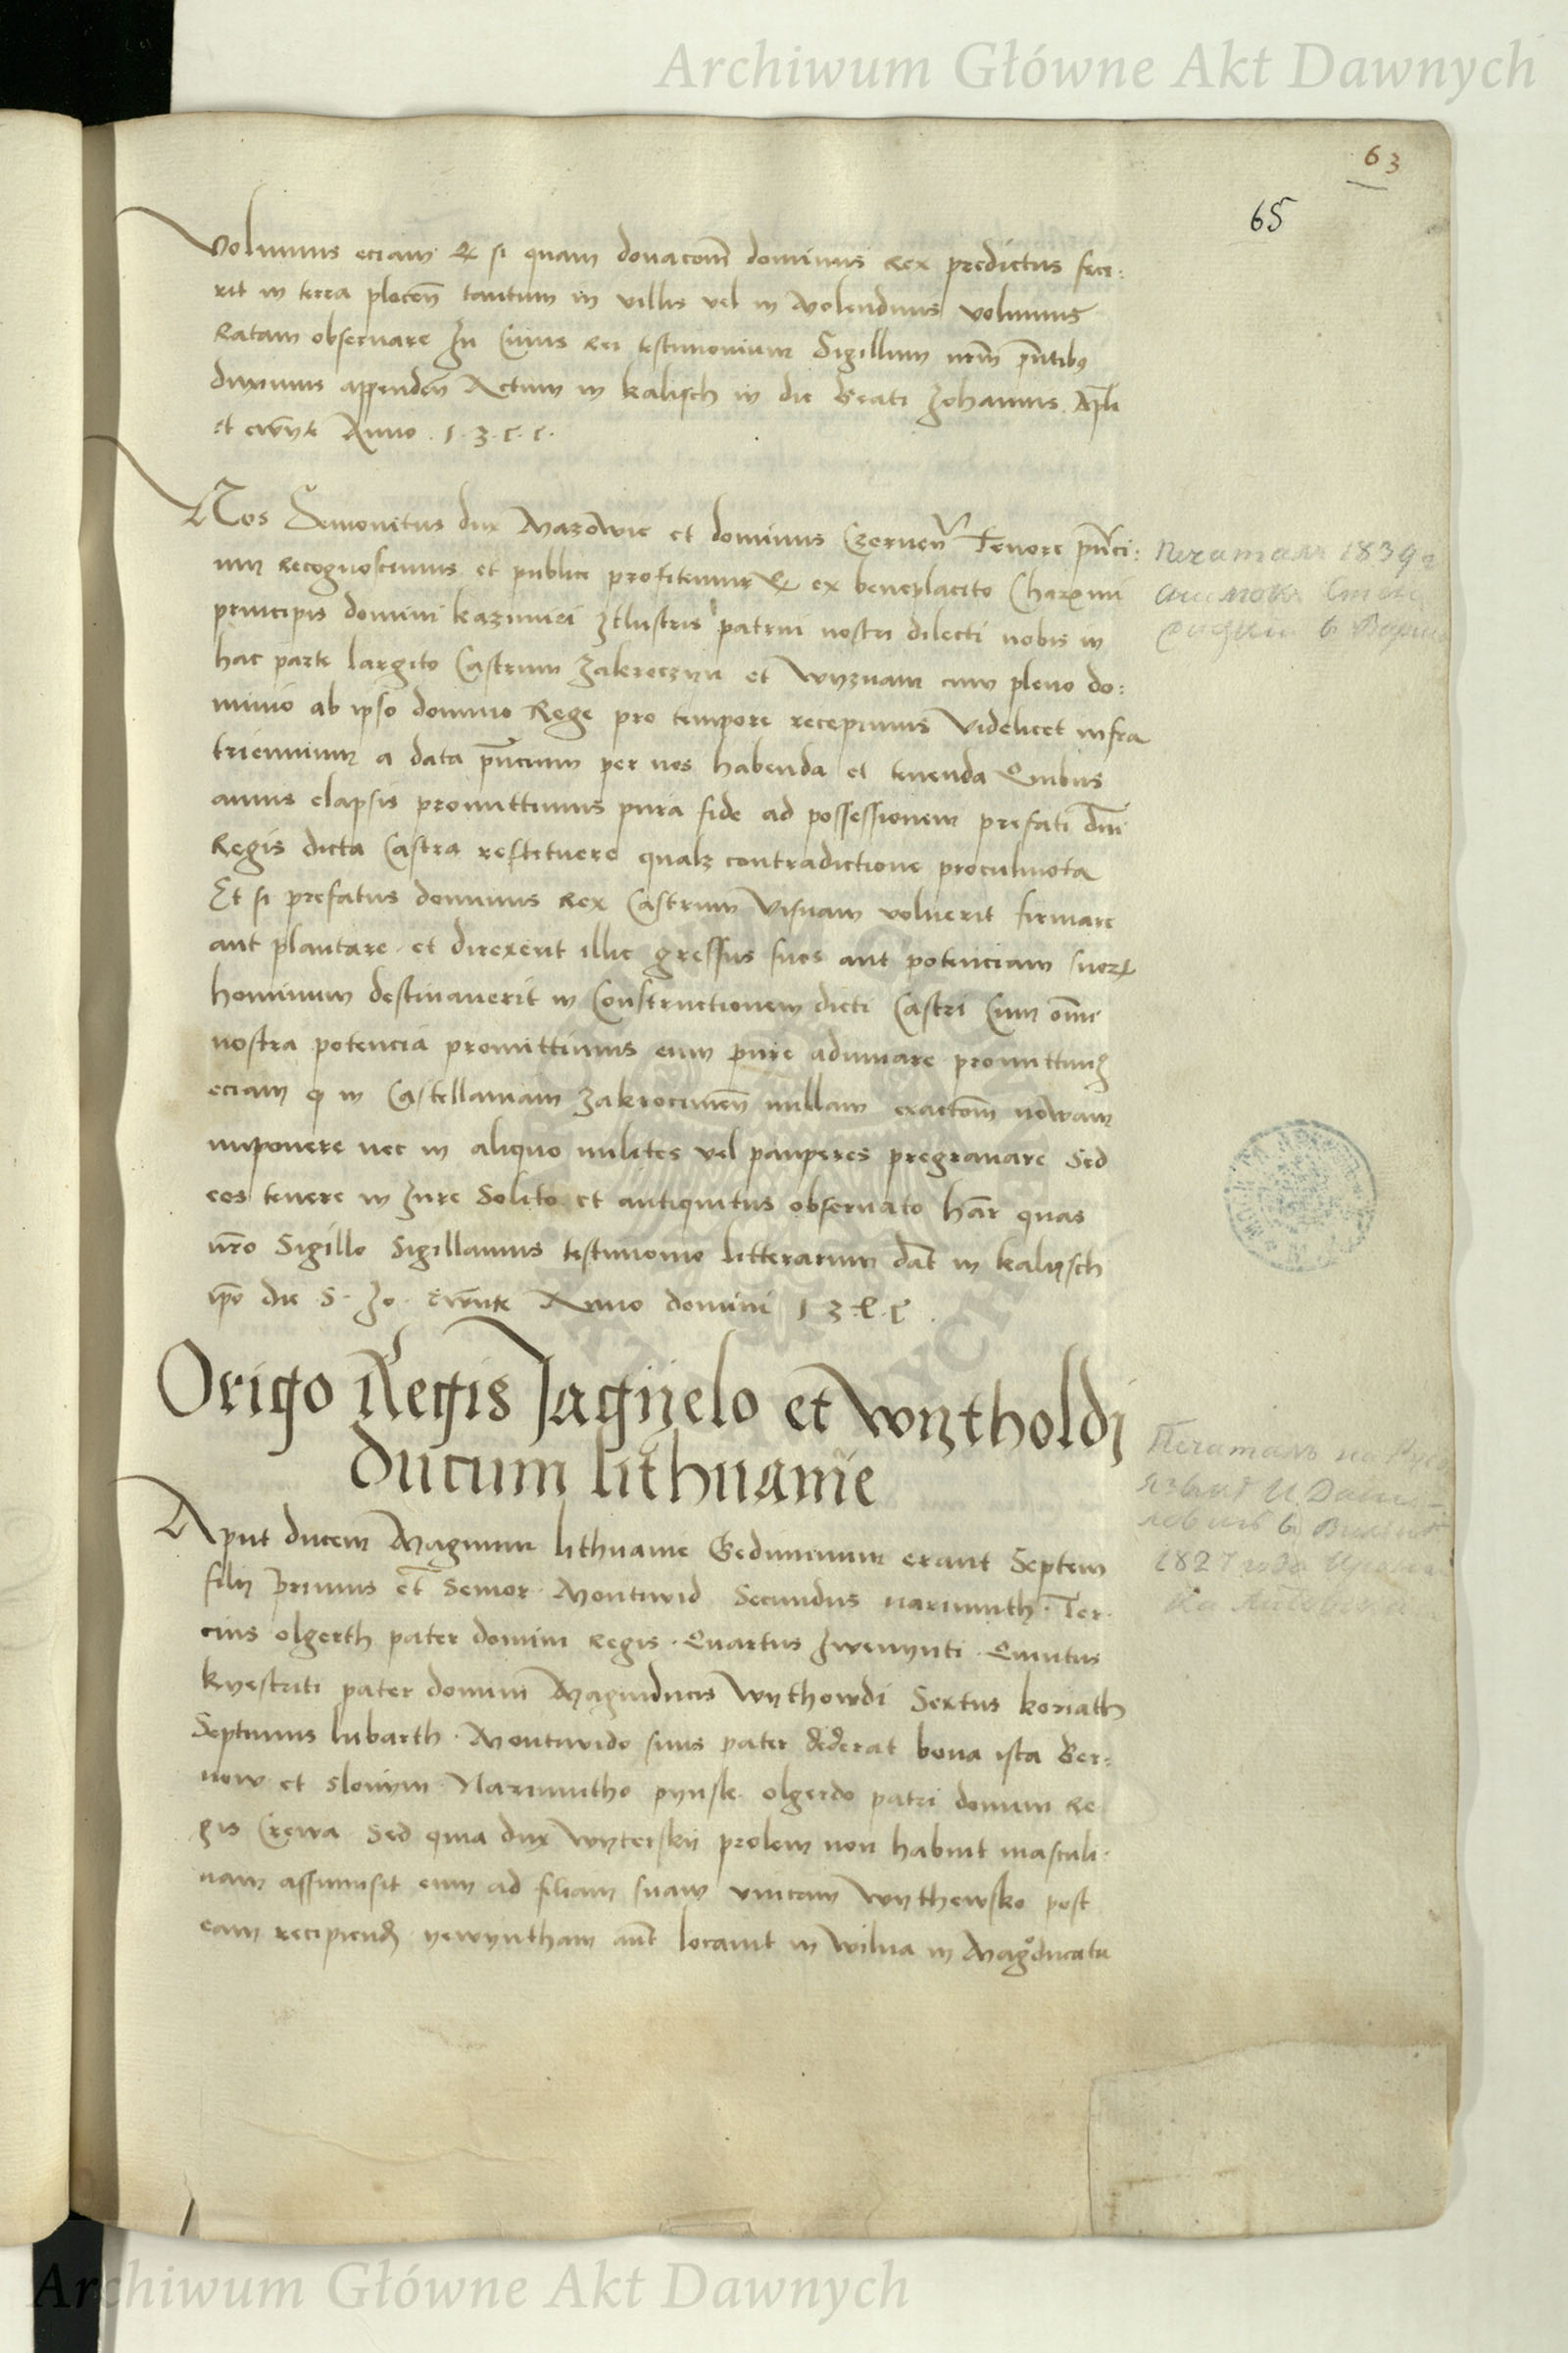 Archiwum Główne Akt Dawnych
63
65
Volumus eciam & si quam donacom̄ dominus Rex predictus fece:
rit in terra plocen̄ tantum in villis vel in Molendinis volumus
Ratam observare In Cuius Rei testimonium Sigillum nr̄m pn̄tib9
duximus appenden̄ Actum in kalisch in die Beati Johannis Apl̄i
et ewn̄te Anno
Nos Semovitus dux Mazowie et dominus Czernen̄ Tenore pn̄ci:
um Recognoscimus et publice profitemur ex beneplacito Charorum
principis domini kazimiri Illustris patrui nostri dilecti nobis in
hac parte largito Castrum Zakroczim et Wyznam cum pleno do:
minio ab ipso domino Rege pro tempore recepimus Videlicet infra
triennium a data pn̄cium per nos habenda et tenenda Quibus
annis elapsis promittimus pura fide ad possessionem prefati dn̄i
Regis dicta Castra restituere qualz contradictione proculmota
Et si prefatus dominus Rex Castrum Visnam voluerit firmare
aut plantare et direxerit illic gressus suos aut potenciam suorꝝ
hominum destinauerit in Constructionem dicti Castri Cum om̄i
nostra potencia promittimus eum pure adiuuare promittimꝰ
eciam ꝙ in Castellaniam Zakrocimen̄ nullam exactom̄ nowam
imponere nec in aliquo milites vel pauperes pregrauare Sed
eos tenere in Jure Solito et antiquitus obseruato har̄ quas
nr̄o Sigillo Sigillamus testimonio litterarum dat̄ in kalysch
ip̄o die S. Jo. ewn̄te Anno domini
Origo Regis Jagyelo et Wytholdi
ducum lithuanie
Aput ducem Magnum lithuanie Gediminum erant Septem
filij Primus et̄ Senior Montiwid Secundus narimuth. Ter:
cius olgerth pater domini Regis. Quartus Jwenynti. Quintus
kyestuti pater domini Magniducis Wythowdi Sextus koriath
Septimus lubarth. Montiuido suus pater dederat bona ista Ger:
now et slonym. Narimutho pynsk olgerdo patri domini Re
gis Crewa Sed quia dux Wyterskij prolem non habuit masculi:
nam assumpsit eum ad filiam suam unicam Wythewsko post
eam recipiend yewyntham aut̄ locauit in Wilna in Mag̊ducatu
Archiwum Główne Akt Dawnych